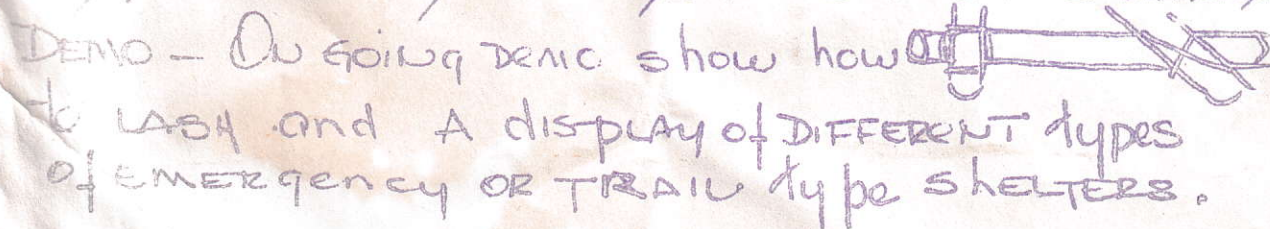 DEMO - ON GOING DEMO show how
to LASH and A dISPLAY of DIFFERENT types
of EMERgency OR TRAIL type SHELTERS.